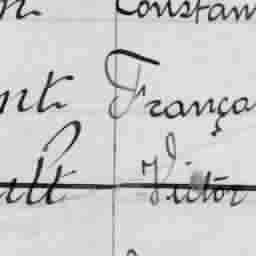 n Constan
nt França
ult Victor